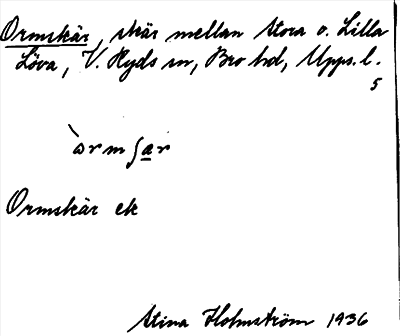 Ormskär, skär mellan Stora o. Lilla
Löva, V. Ryds sn, Bro hd, Upps. l.
5
`ɷrmʃar
Ormskär ek
Stina Holmström 1936